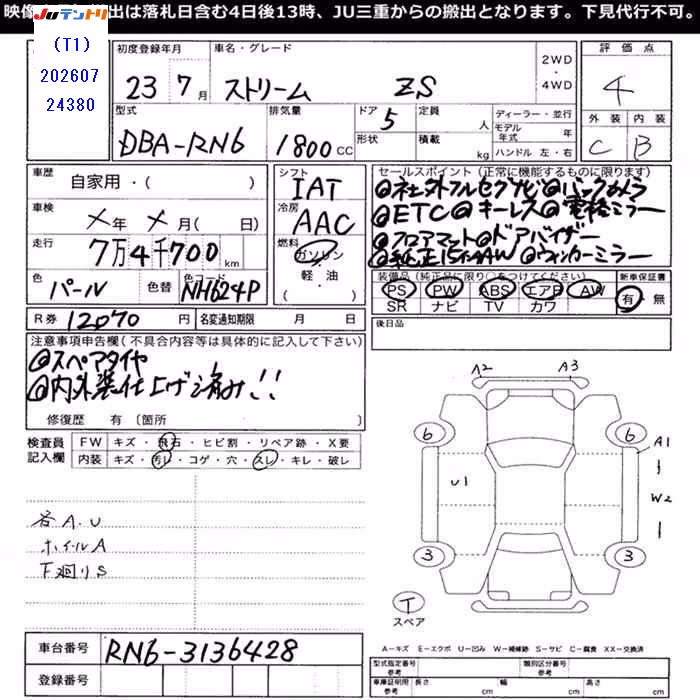 映像 出は落札日含む4日後13時、JU三重からの搬出となります。下見代行不可。
JUテントリ
(T1)
202607
24380
初度登録年月
23 7月
車名・グレード
ストリーム ZS
2WD
・
4WD
評価点
4
外装 内装
C B
型式
DBA-RN6
排気量
1800cc
ドア
5
形状
定員
人
積載
kg
ディーラー・並行
モデル年式 年
ハンドル 左・右
車歴
自家用・( )
車検
×年 ×月( 日)
走行
7万4千700km
シフト
IAT
冷房
AAC
燃料
ガソリン
軽・油
( )
色
パール
色替
色コード
NH624P
R券 12070円
名変通知期限 月 日
セールスポイント(正常に機能するものに限ります)
@社外フルセグナビ@バックカメラ
@ETC@キーレス@電格ミラー
@フロアマット@ドアバイザー
@純正15incAW@ウィンカーミラー
装備品(純正品に限り○をつけてください)
PS PW ABS エアB AW
SR ナビ TV カワ
新車保証書
有・無
後日品
注意事項申告欄(不具合内容等は具体的に記入して下さい)
@スペアタイヤ
@内外装仕上げ済み!!
修復歴 有〔箇所 〕
検査員
記入欄
FW キズ・飛石・ヒビ割・リペア跡・X要
内装 キズ・汚レ・コゲ・穴・スレ・キレ・破レ
各A.U
ホイールA
下廻りS
A2 A3
6 6
A1
U1
W2
3 3
T
スペア
車台番号 RN6-3136428
登録番号
A-キズ E-エクボ U-凹み W-補修跡 S-サビ C-腐食 XX-交換済
型式指定番号
参考
類別区分番号
参考
車庫証明用
参考
長さ cm
幅 cm
高さ cm